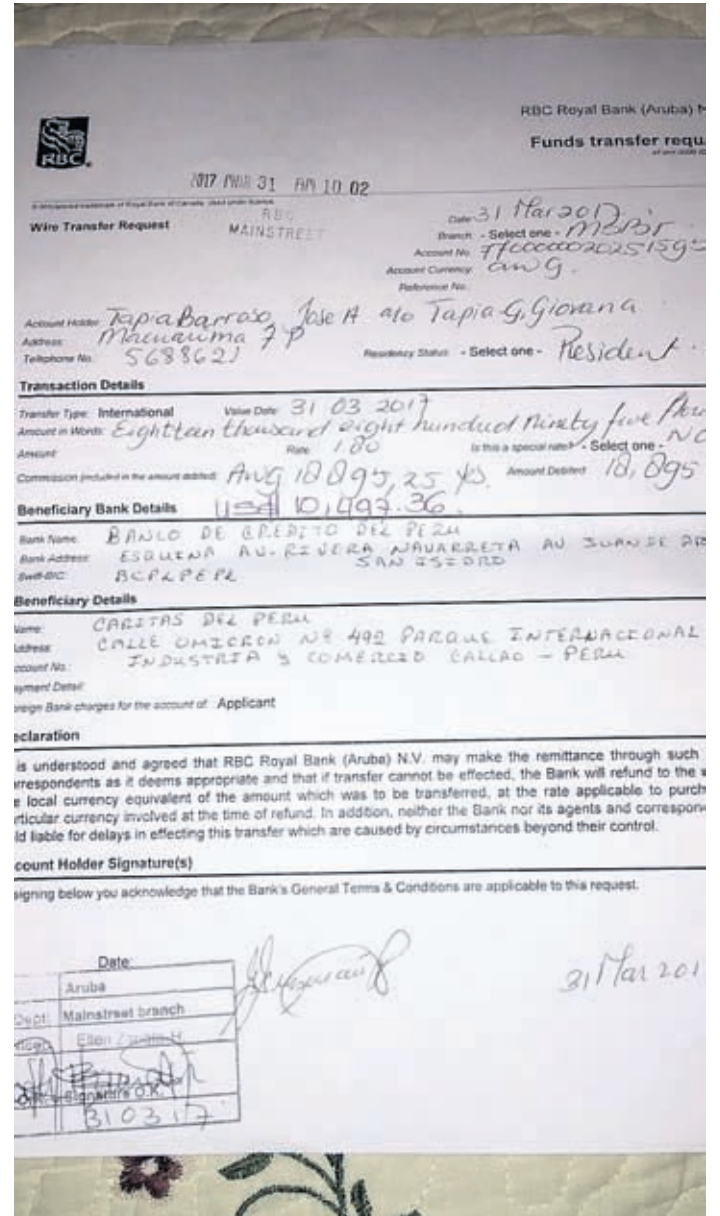 RBC Royal Bank (Aruba) N
Funds transfer requ
RBC
2017 MAR 31 AM 10 02
RBC
MAINSTREET
Wire Transfer Request
Date 31 Mar 2017
Branch - Select one -
Account No.
Account Currency: awg.
Reference No.:
Account Holder: Tapia Barroso, Jose A a/o Tapia G, Giovana
Address: Macuarima 7 P
Telephone No. 5688621
Residency Status: - Select one - Resident.
Transaction Details
Transfer Type: International Value Date: 31 03 2017
Amount in Words: Eightteen thousand eight hundred ninety five
Amount: Rate 1.80 Is this a special rate? - Select one - NO
Commission (included in the amount debited) AWG 18895,25 Amount Debited 18,895
Beneficiary Bank Details US$ 10,497.36
Bank Name: BANCO DE CREDITO DEL PERU
Bank Address: ESQUINA AV. RIVERA NAVARRETA AV JUAN DE
SAN ISIDRO
Swift-BIC: BCPLPEPL
Beneficiary Details
Name: CARITAS DEL PERU
Address: CALLE OMICRON Nº 492 PARQUE INTERNACIONAL
ccount No.: INDUSTRIA y COMERCIO CALLAO - PERU
ayment Detail:
oreign Bank charges for the account of: Applicant
eclaration
is understood and agreed that RBC Royal Bank (Aruba) N.V. may make the remittance through such
rrespondents as it deems appropriate and that if transfer cannot be effected, the Bank will refund to the
e local currency equivalent of the amount which was to be transferred, at the rate applicable to purch
rticular currency involved at the time of refund. In addition, neither the Bank nor its agents and correspon
ld liable for delays in effecting this transfer which are caused by circumstances beyond their control.
count Holder Signature(s)
signing below you acknowledge that the Bank's General Terms & Conditions are applicable to this request.
31 Mar 201
Date:
Aruba
Dept: Mainstreet branch
Ellen
Signature O.K.
310317